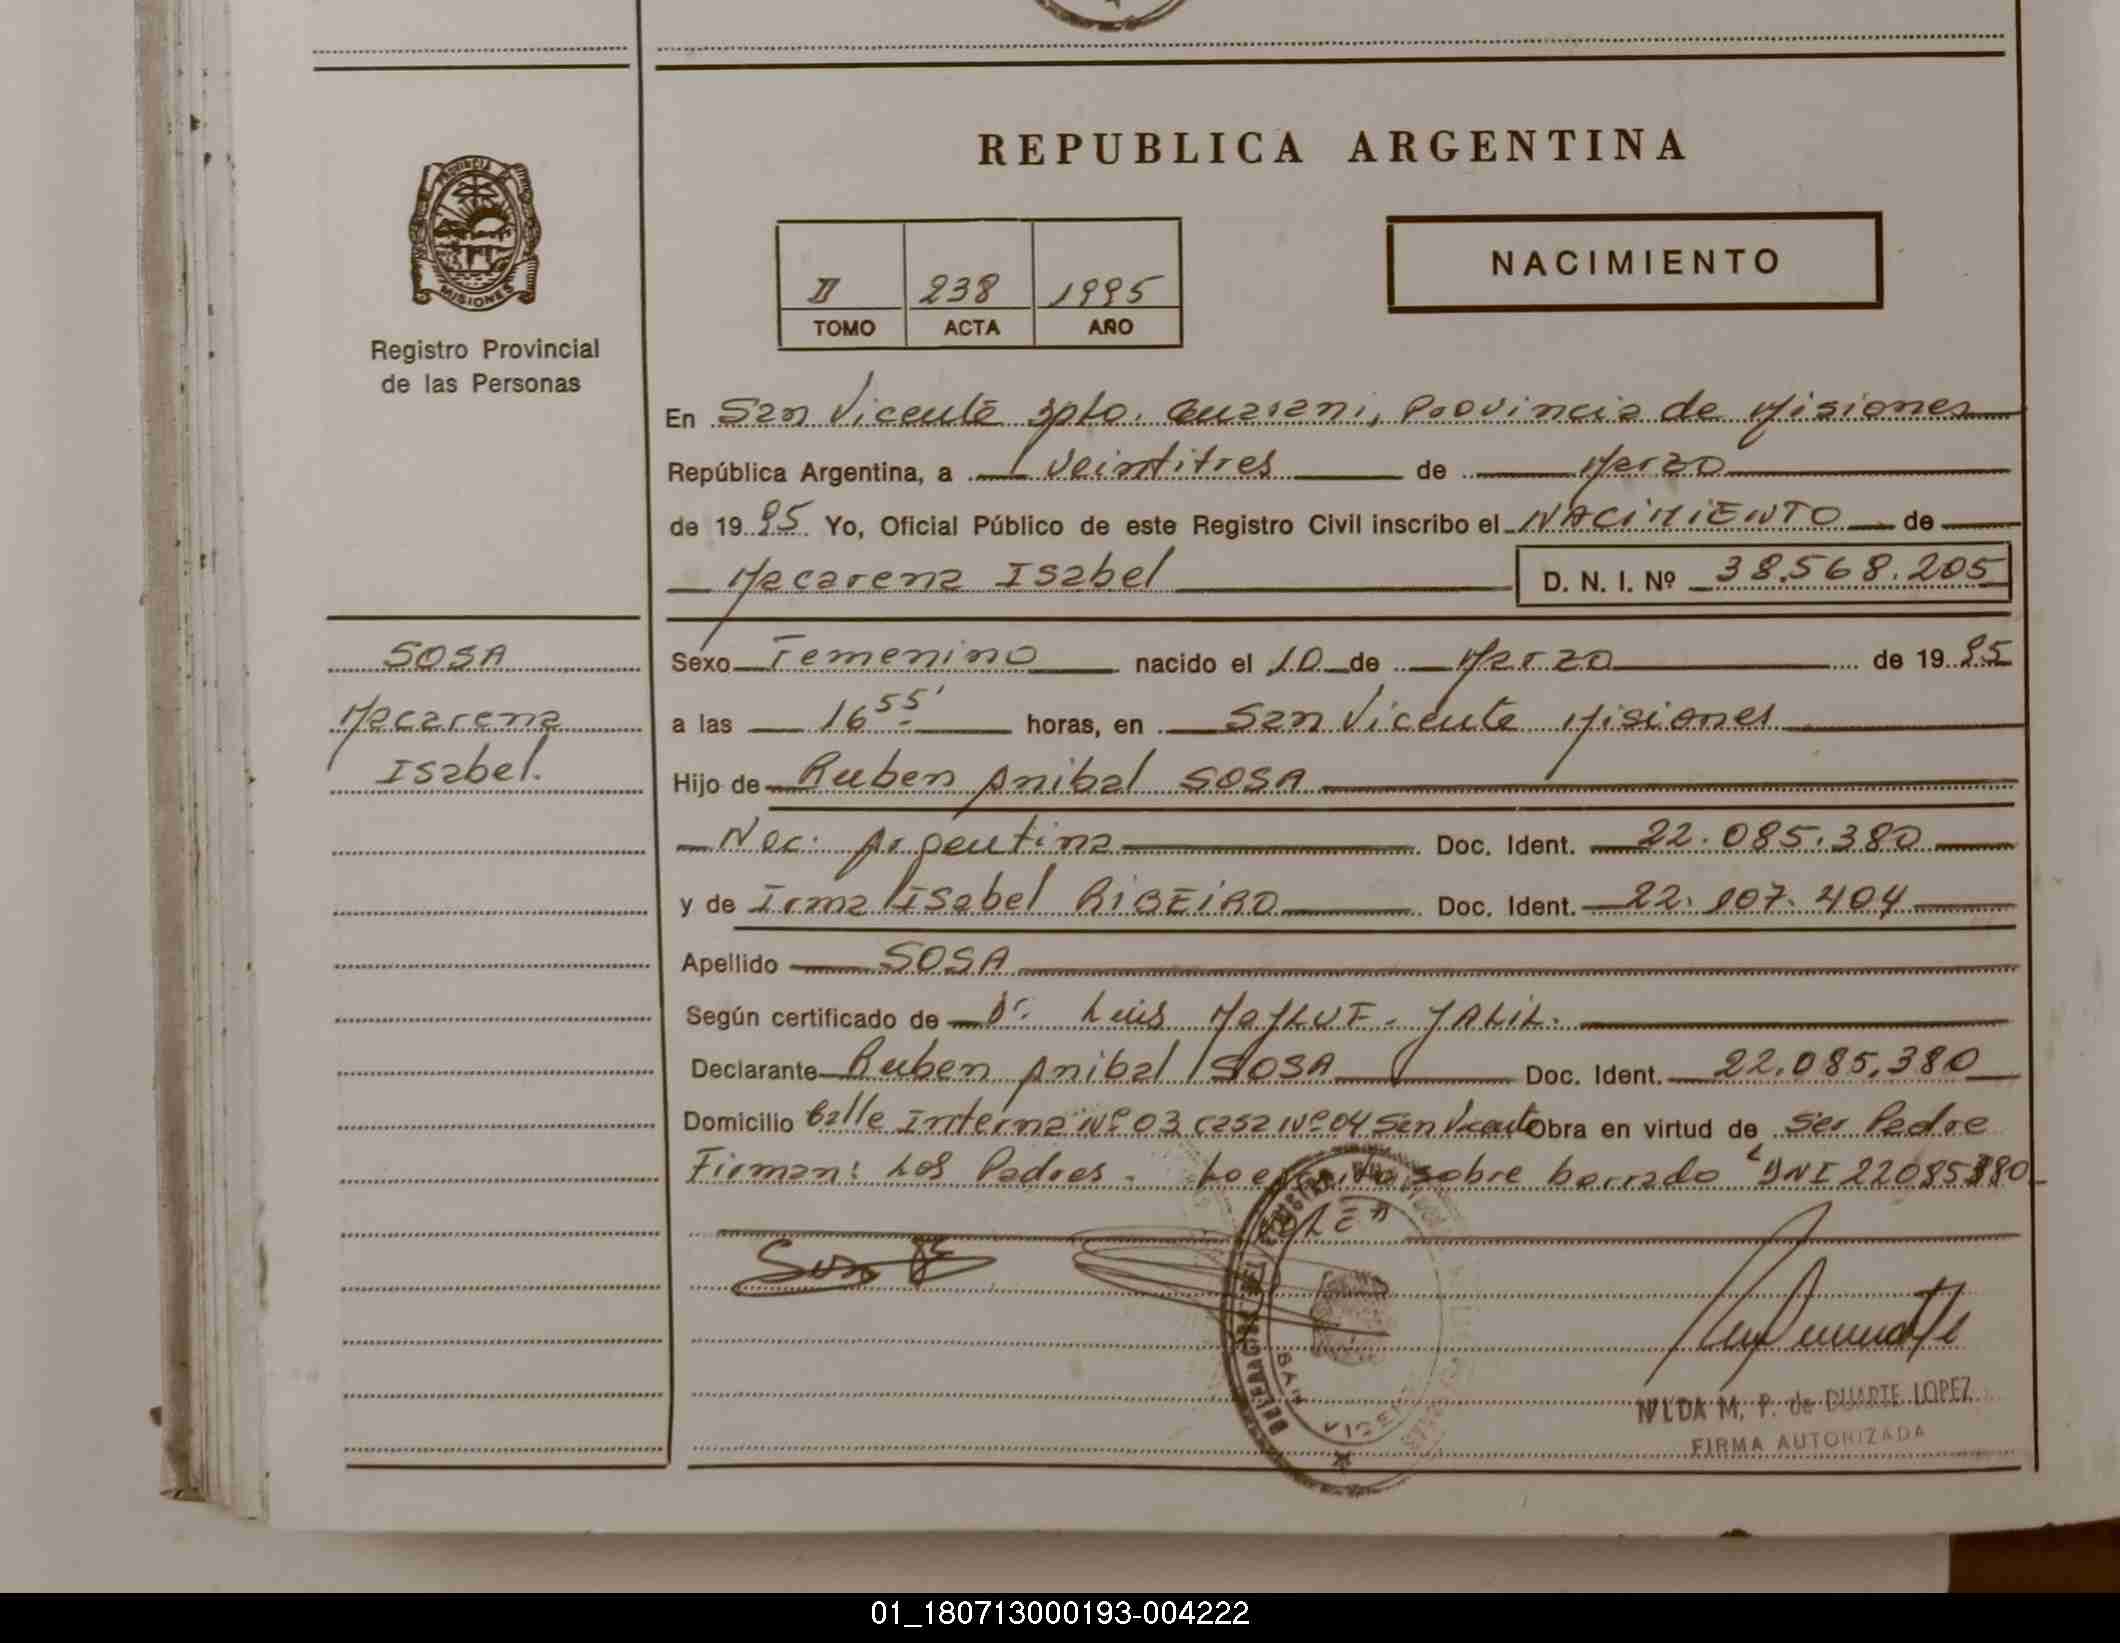 REPUBLICA ARGENTINA
PROVINCIA DE
MISIONES
Registro Provincial
de las Personas
NACIMIENTO
II 238 1995
TOMO ACTA AÑO
En San Vicente Dpto. Guarani, Provincia de Misiones
República Argentina, a Veintitres de Marzo
de 1995 Yo, Oficial Público de este Registro Civil inscribo el NACIMIENTO de
Macarena Isabel D. N. I. Nº 38.568.205
SOSA
Macarena
Isabel.
Sexo Femenino nacido el 10 de Marzo de 1995
a las 16 55' horas, en San Vicente Misiones
Hijo de Ruben Anibal SOSA
Nac. Argentina Doc. Ident. 22.085.380
y de Irma Isabel RIBEIRO Doc. Ident. 22.107.404
Apellido SOSA
Según certificado de Dr. Luis YALIL.
Declarante Ruben Anibal SOSA Doc. Ident. 22.085.380
Domicilio Calle Interna Nº 03 casa Nº 04 San Vicente Obra en virtud de Ser Padre
Firman: Los Padres. Lo escrito sobre borrado "DNI 22085380
VALE"
NILDA M. P. de DUARTE LOPEZ
FIRMA AUTORIZADA
01_180713000193-004222